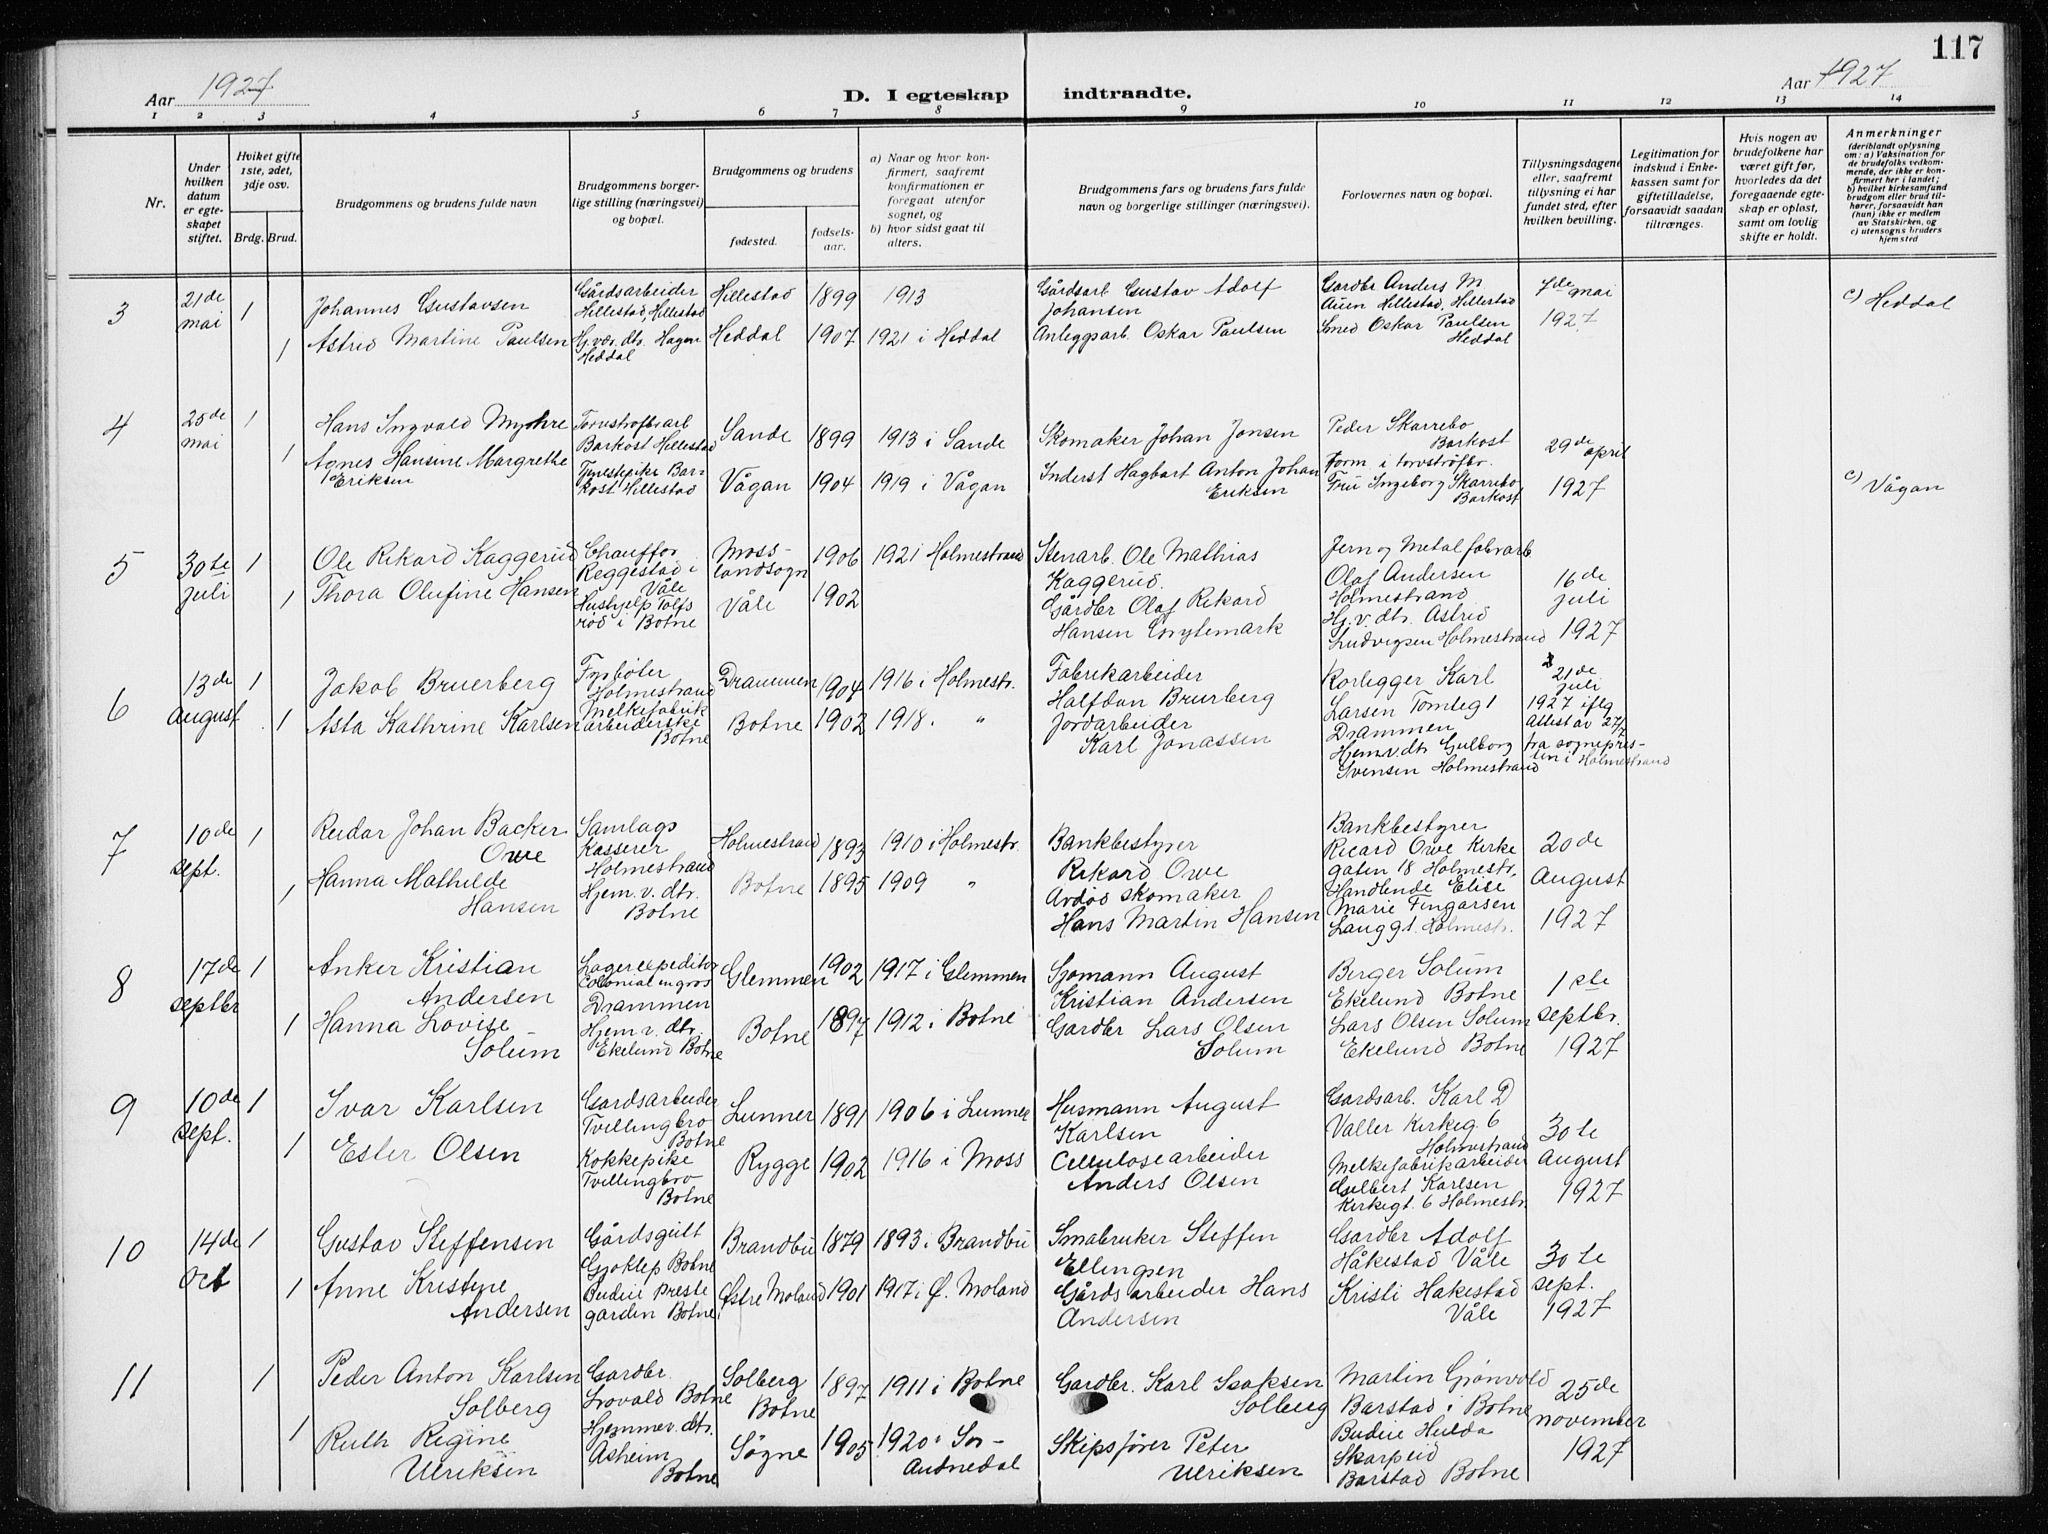 117
Aar 1927
D. I egteskap indtraadte.
Aar 1927
1 2 3 4 5 6 7 8 9 10 11 12 13 14
Nr.
Under hvilken datum er egteskapet stiftet.
Hviket gifte 1ste, 2det, 3dje osv.
Brdg. Brud.
Brudgommens og brudens fulde navn
Brudgommens borgerlige stilling (næringsvei) og bopæl.
Brudgommens og brudens
fødested. fødselsaar.
a) Naar og hvor konfirmert, saafremt konfirmationen er foregaat utenfor sognet, og
b) hvor sidst gaat til alters.
Brudgommens fars og brudens fars fulde navn og borgerlige stillinger (næringsvei).
Forlovernes navn og bopæl.
Tillysningsdagene eller, saafremt tillysning ei har fundet sted, efter hvilken bevilling.
Legitimation for indskud i Enkekassen samt for giftetilladelse, forsaavidt saadan tiltrænges.
Hvis nogen av brudefolkene har været gift før, hvorledes da det foregaaende egteskap er opløst, samt om lovlig skifte er holdt.
Anmerkninger (deriblandt oplysning om: a) Vaksination for de brudefolks vedkommende, der ikke er konfirmert her i landet; b) hvilket kirkesamfund brudgom eller brud tilhører, forsaavidt han (hun) ikke er medlem av Statskirken, og c) utensogns bruders hjemsted
3 21de mai 1 Johannes Gustavsen Gårdsarbeider Hillestad, Hillestad Hillestad 1899 1913 Gårdsarb. Gustav Adolf Johansen Gardbr Anders M. Auen Hillestad, Hillestad 7de mai 1927 c) Heddal
1 Astrid Martine Paulsen Hj.vær. dtr. Hagen Heddal Heddal 1907 1921 i Heddal Anleggsarb. Oskar Paulsen Smed Oskar Paulsen Heddal
4 25de mai 1 Hans Ingvald Myhre Torvstrøfbr.arb Barkost Hillestad Sande 1899 1913 i Sande Skomaker Johan Jonsen Peder Skarrebo Barkost Form i torvstrøfbr. 29de april 1927
1 Agnes Hansine Margrethe Eriksen Tjenestepike Barkost Hillestad Vågan 1904 1919 i Vågan Inderst Hagbart Anton Johan Eriksen Fru Ingeborg Skarrebo Barkost c) Vågan
5 30te juli 1 Ole Rikard Kaggerud Chauffør Reggestad i Våle Moss-landsogn 1906 1921 Holmestrand Stenarb. Ole Mathias Kaggerud. Jern og Metalfabrarb Olaf Andersen Holmestrand 16de juli 1927
1 Thora Olufine Hansen Hushjelp Tolfsrød i Botne Våle 1902 Gårdbr Olaf Rikard Hansen Snytemark Hj.v.dtr. Astrid Ludvigsen Holmestrand
6 13de august 1 Jakob Bruerberg Fyrbøter Holmestrand Drammen 1904 1916 i Holmestr. Fabrikarbeider Halfdan Bruerberg Rørlegger Karl Larsen Tomteg 1 Drammen 21de juli 1927 iflg Attest av 27/7 fra sognepresten i Holmestrand
1 Asta Kathrine Karlsen Melkefabrikarbeiderske Botne Botne 1902 1918. " Jordarbeider Karl Jonassen Hjem.v.dtr Gulborg Svensen Holmestrand
7 10de sept. 1 Reidar Johan Backer Owe Samlags Kasserer Holmestrand Holmestrand 1893 1910 i Holmestr. Bankbestyrer Rikard Owe Bankbestyrer Ricard Owe Kirkegaten 18 Holmestr. 20de August 1927
1 Hanna Mathilde Hansen Hjem.v.dtr. Botne Botne 1895 1909 " Avdød skomaker Hans Martin Hansen Handlende Elise Marie Fingarsen Langgt. Holmestr.
8 17de septbr 1 Anker Kristian Andersen Lagerexpeditør Colonial en gros Drammen Glemmen 1902 1917 i Glemmen Sjømann August Kristian Andersen Berger Solum Ekelund Botne 1ste septbr. 1927
1 Hanna Lovise Solum Hjem v. dtr. Ekelund Botne Botne 1897 1912 i Botne Gardbr Lars Olsen Solum Lars Olsen Solum Ekelund Botne
9 10de sept. 1 Ivar Karlsen Gardsarbeider Tvillingbro Botne Lunner 1891 1906 i Lunner Husmann August Karlsen Gardsarb. Karl D Valler Kirkeg. 6 Holmestrand 30te August 1927
1 Ester Olsen Kokkepike Tvillingbro Botne Rygge 1902 1916 i Moss Cellulosearbeider Anders Olsen Melkefabrikarbeider Gulbert Karlsen Kirkegt. 6 Holmestr.
10 14de Oct 1 Gustav Steffensen Gårdsgutt Gjøklep Botne Brandbu 1879 1893 i Brandbu Småbruker Steffen Ellingsen Gardbr Adolf Håkestad Våle 30te sept. 1927
1 Anne Kristine Andersen Budeie Prestegarden Botne Østre Moland 1901 1917 i Ø. Moland Gårdsarbeider Hans Andersen Kristi Hakestad Våle
11 1 Peder Anton Karlsen Solberg Gardbr. Lovald Botne Solberg Botne 1897 1911 i Botne Gardbr. Karl Isaksen Solberg Martin Grønvold Barstad i Botne 25de november 1927
1 Ruth Regine Ulriksen Hjemmev. dtr. Åsheim Botne Søgne 1905 1920 i Sør-Audnedal Skipsfører Peter Ulriksen Budeie Hulda Skarpeid Barstad Botne